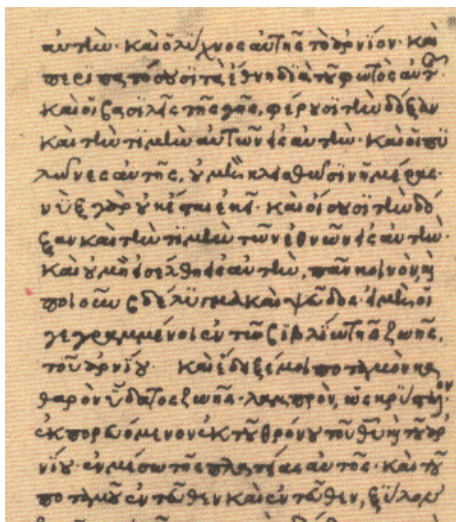 αὐτὴν· καὶ ὁ λύχνος αὐτῆς τὸ ἀρνίον· καὶ
περιπατήσουσι τὰ ἔθνη διὰ τοῦ φωτὸς αὐτῆς·
καὶ οἱ βασιλεῖς τῆς γῆς, φέρουσι τὴν δόξαν
καὶ τὴν τιμὴν αὐτῶν εἰς αὐτὴν· καὶ οἱ πυ
λῶνες αὐτῆς, οὐ μὴ κλεισθῶσιν ἡμέρας·
νὺξ γὰρ οὐκ ἔσται ἐκεῖ· καὶ οἴσουσι τὴν δό
ξαν καὶ τὴν τιμὴν τῶν ἐθνῶν εἰς αὐτὴν·
καὶ οὐ μὴ εἰσέλθη εἰς αὐτὴν, πᾶν κοινὸν, ἢ
ποιοῦν βδέλυγμα καὶ ψεῦδος· εἰ μὴ οἱ
γεγραμμένοι ἐν τῶ βιβλίω τῆς ζωῆς,
τοῦ ἀρνίου· καὶ ἔδειξέ μοι ποταμὸν κα
θαρὸν ὕδατος ζωῆς· λαμπρὸν, ὡς κρύσταλλον
ἐκπορευόμενον ἐκ τοῦ θρόνου τοῦ θυ καὶ τοῦ ἀρ
νίου· ἐν μέσω τῆς πλατείας αὐτῆς· καὶ τοῦ
ποταμοῦ ἐντεῦθεν καὶ ἐντεῦθεν, ξύλον